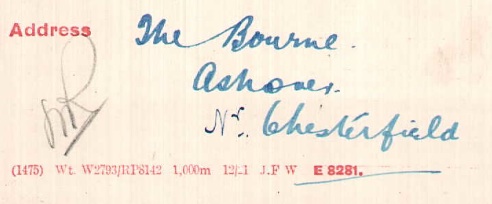 Address The Bourne.
Ashover.
Nr. Chesterfield
(1475) Wt. W2793/RP8142 1,000m 12/21 J.F W E 8281.